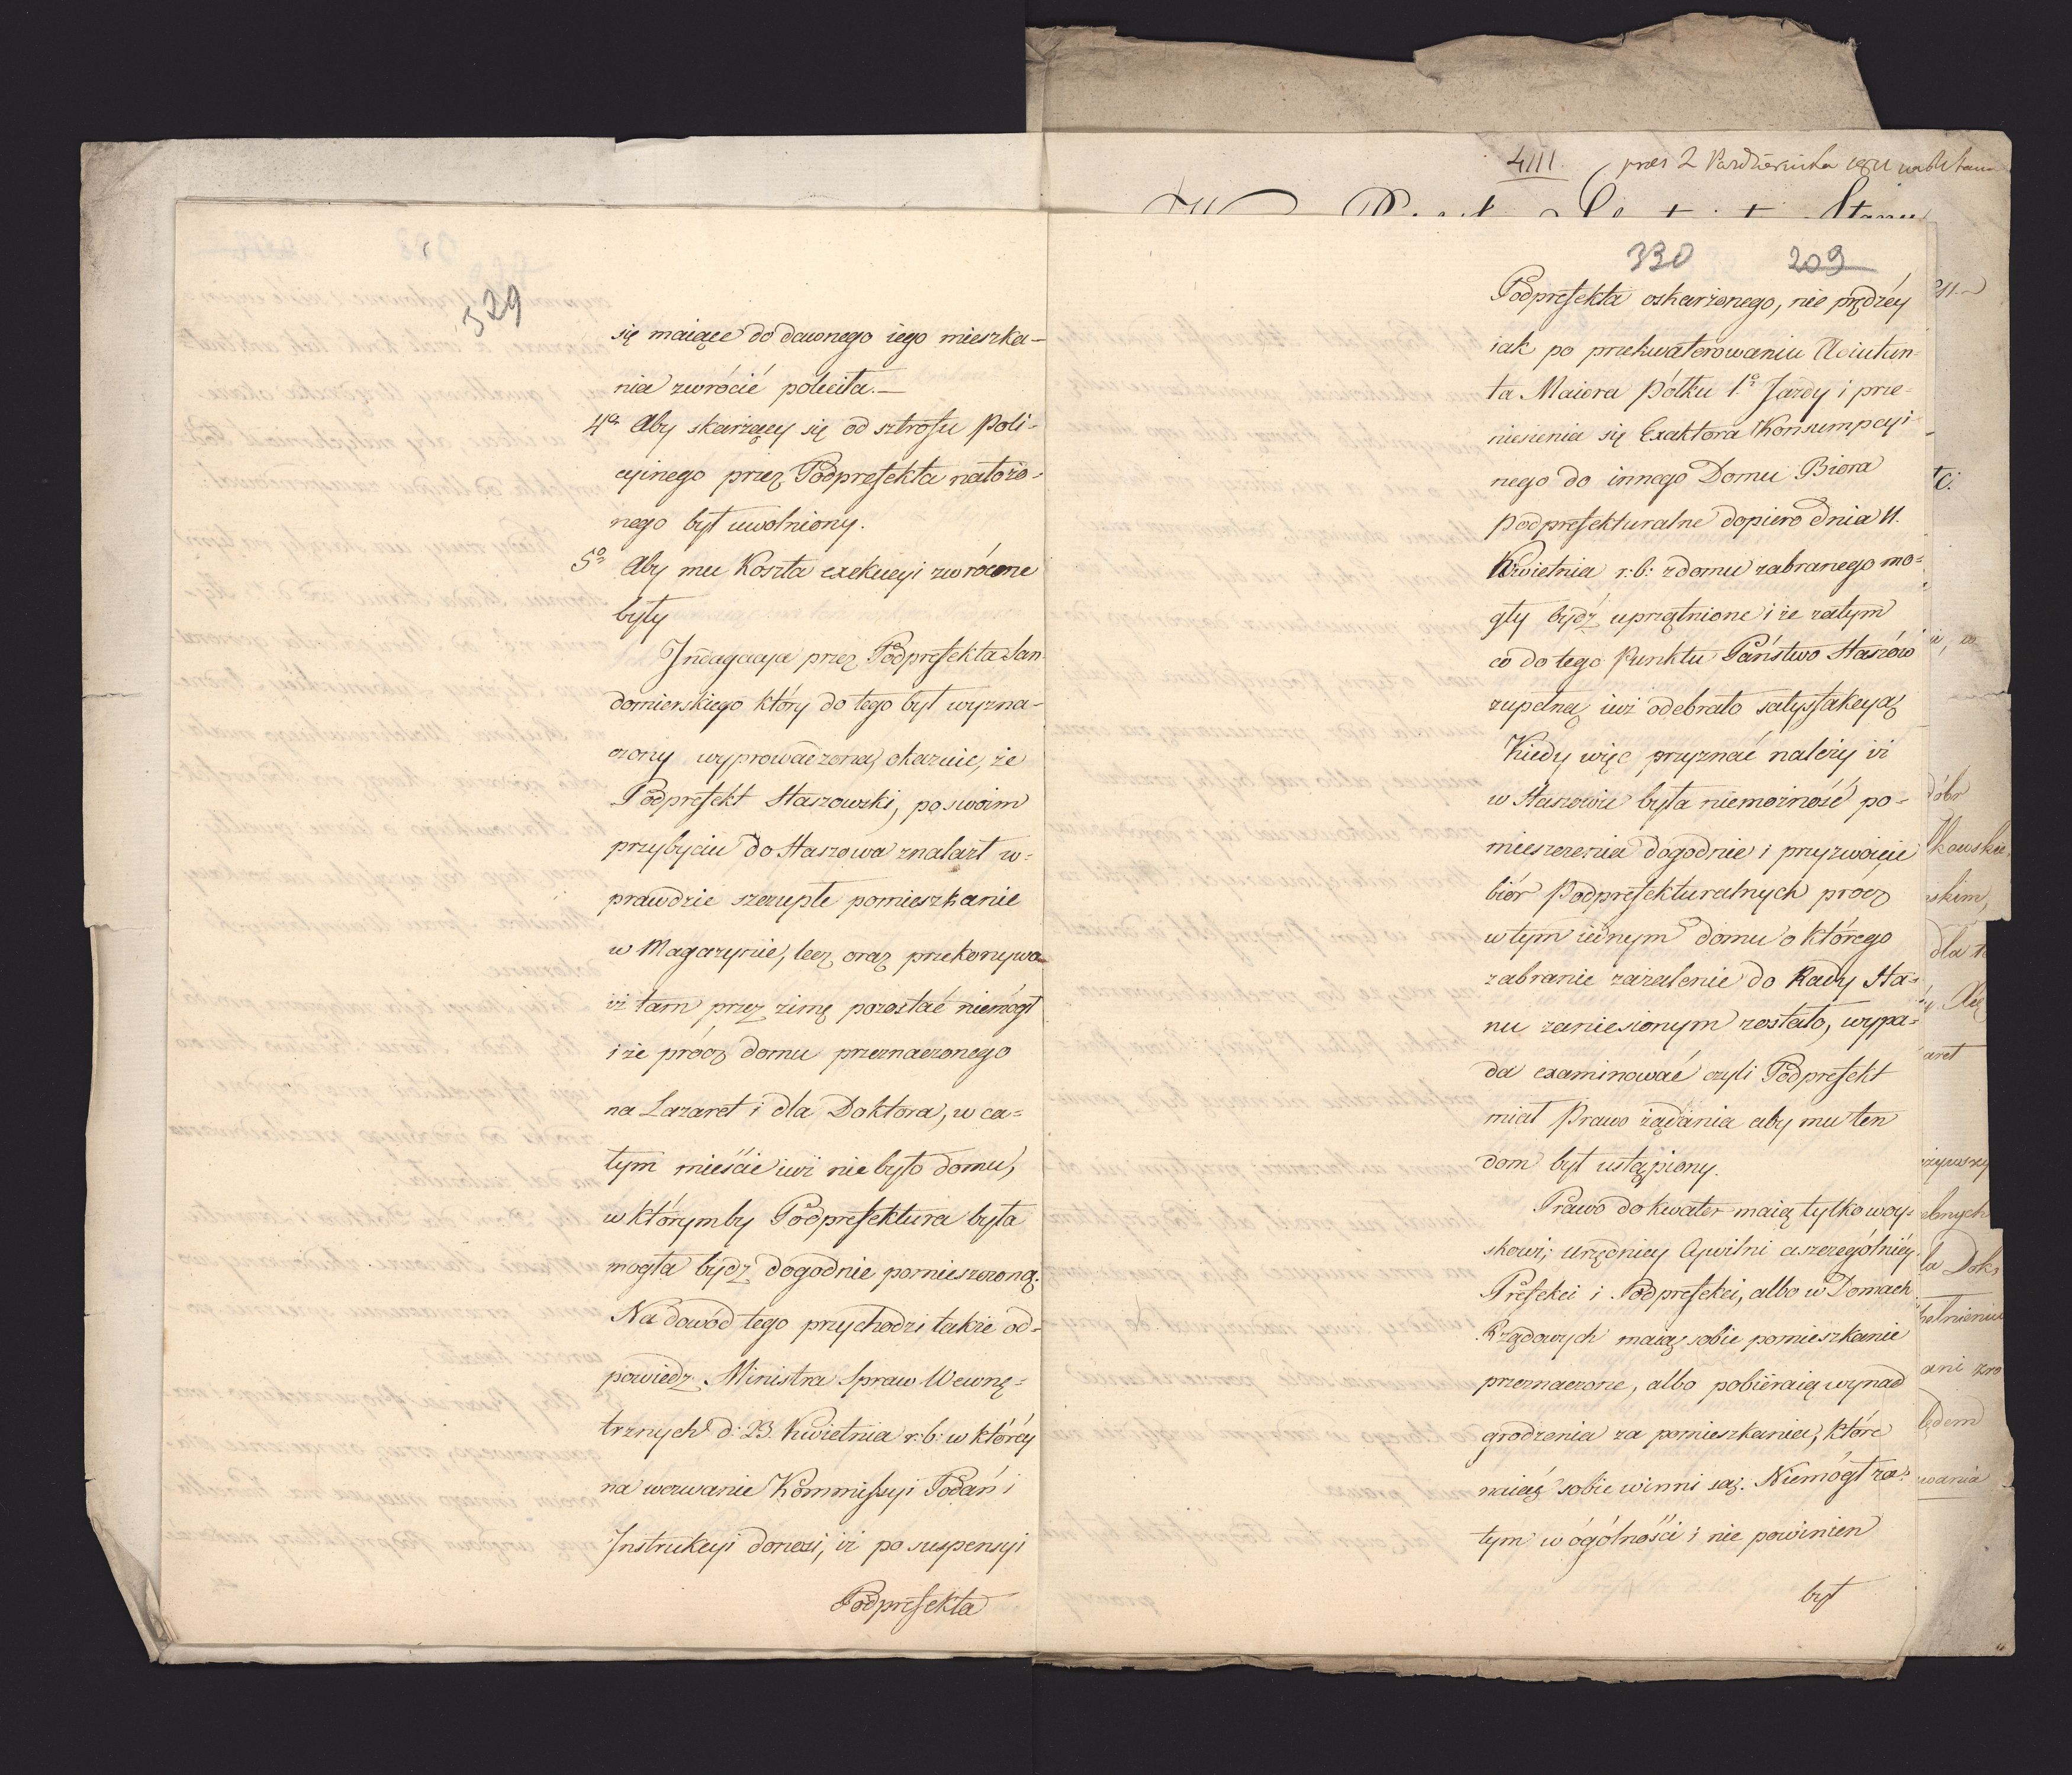 329
się maiące do dawnego iego mieszka-
nia zwrócić poleciła.—
4º Aby skarżący się od sztrofu Poli-
cyinego przez Podprefekta nałożo-
nego był uwolniony.
5º Aby mu Koszta exekucyi zwrócone
były
Indagacya przez Podprefekta San-
domierskiego który do tego był wyzna-
czony wyprowadzona, okazuie, że
Podprefekt Staszowski, po swoim
przybyciu do Staszowa znalazł w-
prawdzie szczupłe pomieszkanie
w Magazynie, lecz oraz przekonywa
iż tam przez zimę pozostać niemógł
i że prócz domu przeznaczonego
na Lazaret i dla Doktora, w ca=
łym mieście iuż nie było domu,
w którymby Podprefektura była
mogła bydź dogodnie pomieszczoną.
Na dowód tego przychodzi także od=
powiedz Ministra Spraw Wewnę=
trznych d: 23. Kwietnia r: b: w któréy
na wezwanie Kommissyi Podań i
Instrukcyi donosi, iż po suspensyi
Podprefekta
4111. prez 2 Października 1811
330 209
Podprefekta oskarżonego, nie prędzéy
iak po przekwaterowaniu Adiutan-
ta Maiora Półku 1º Jazdy i prze-
niesienia się Exaktora Konsumpcyi-
nego do innego Domu Biora
Podprefekturalne dopiero dnia 11.
Kwietnia r: b: z domu zabranego mo=
gły bydź uprzątnione i że zatym
co do tego Punktu Państwo Staszów
zupełną iuż odebrało satysfakcyą
Kiedy więc przyznać należy iż
w Staszowie była niemożność po-
mieszczenia dogodnie i przyzwoicie
biór Podprefekturalnych prócz
w tym iednym domu o którego
zabranie zażalenie do Rady Sta-
nu zaniesionym zostało, wypa=
da examinować czyli Podprefekt
miał Prawo żądania aby mu ten
dom był ustąpiony.
Prawo do kwater maią tylko woy=
skowi; urzędnicy Cywilni a szczególniéy
Prefekci i Podprefekci, albo w Domach
Rządowych maią sobie pomieszkanie
przeznaczone, albo pobieraią wynad
grodzenia za pomieszkania, które
naiąć sobie winni są. Niemógł za=
tym w ogólności i nie powinien
był